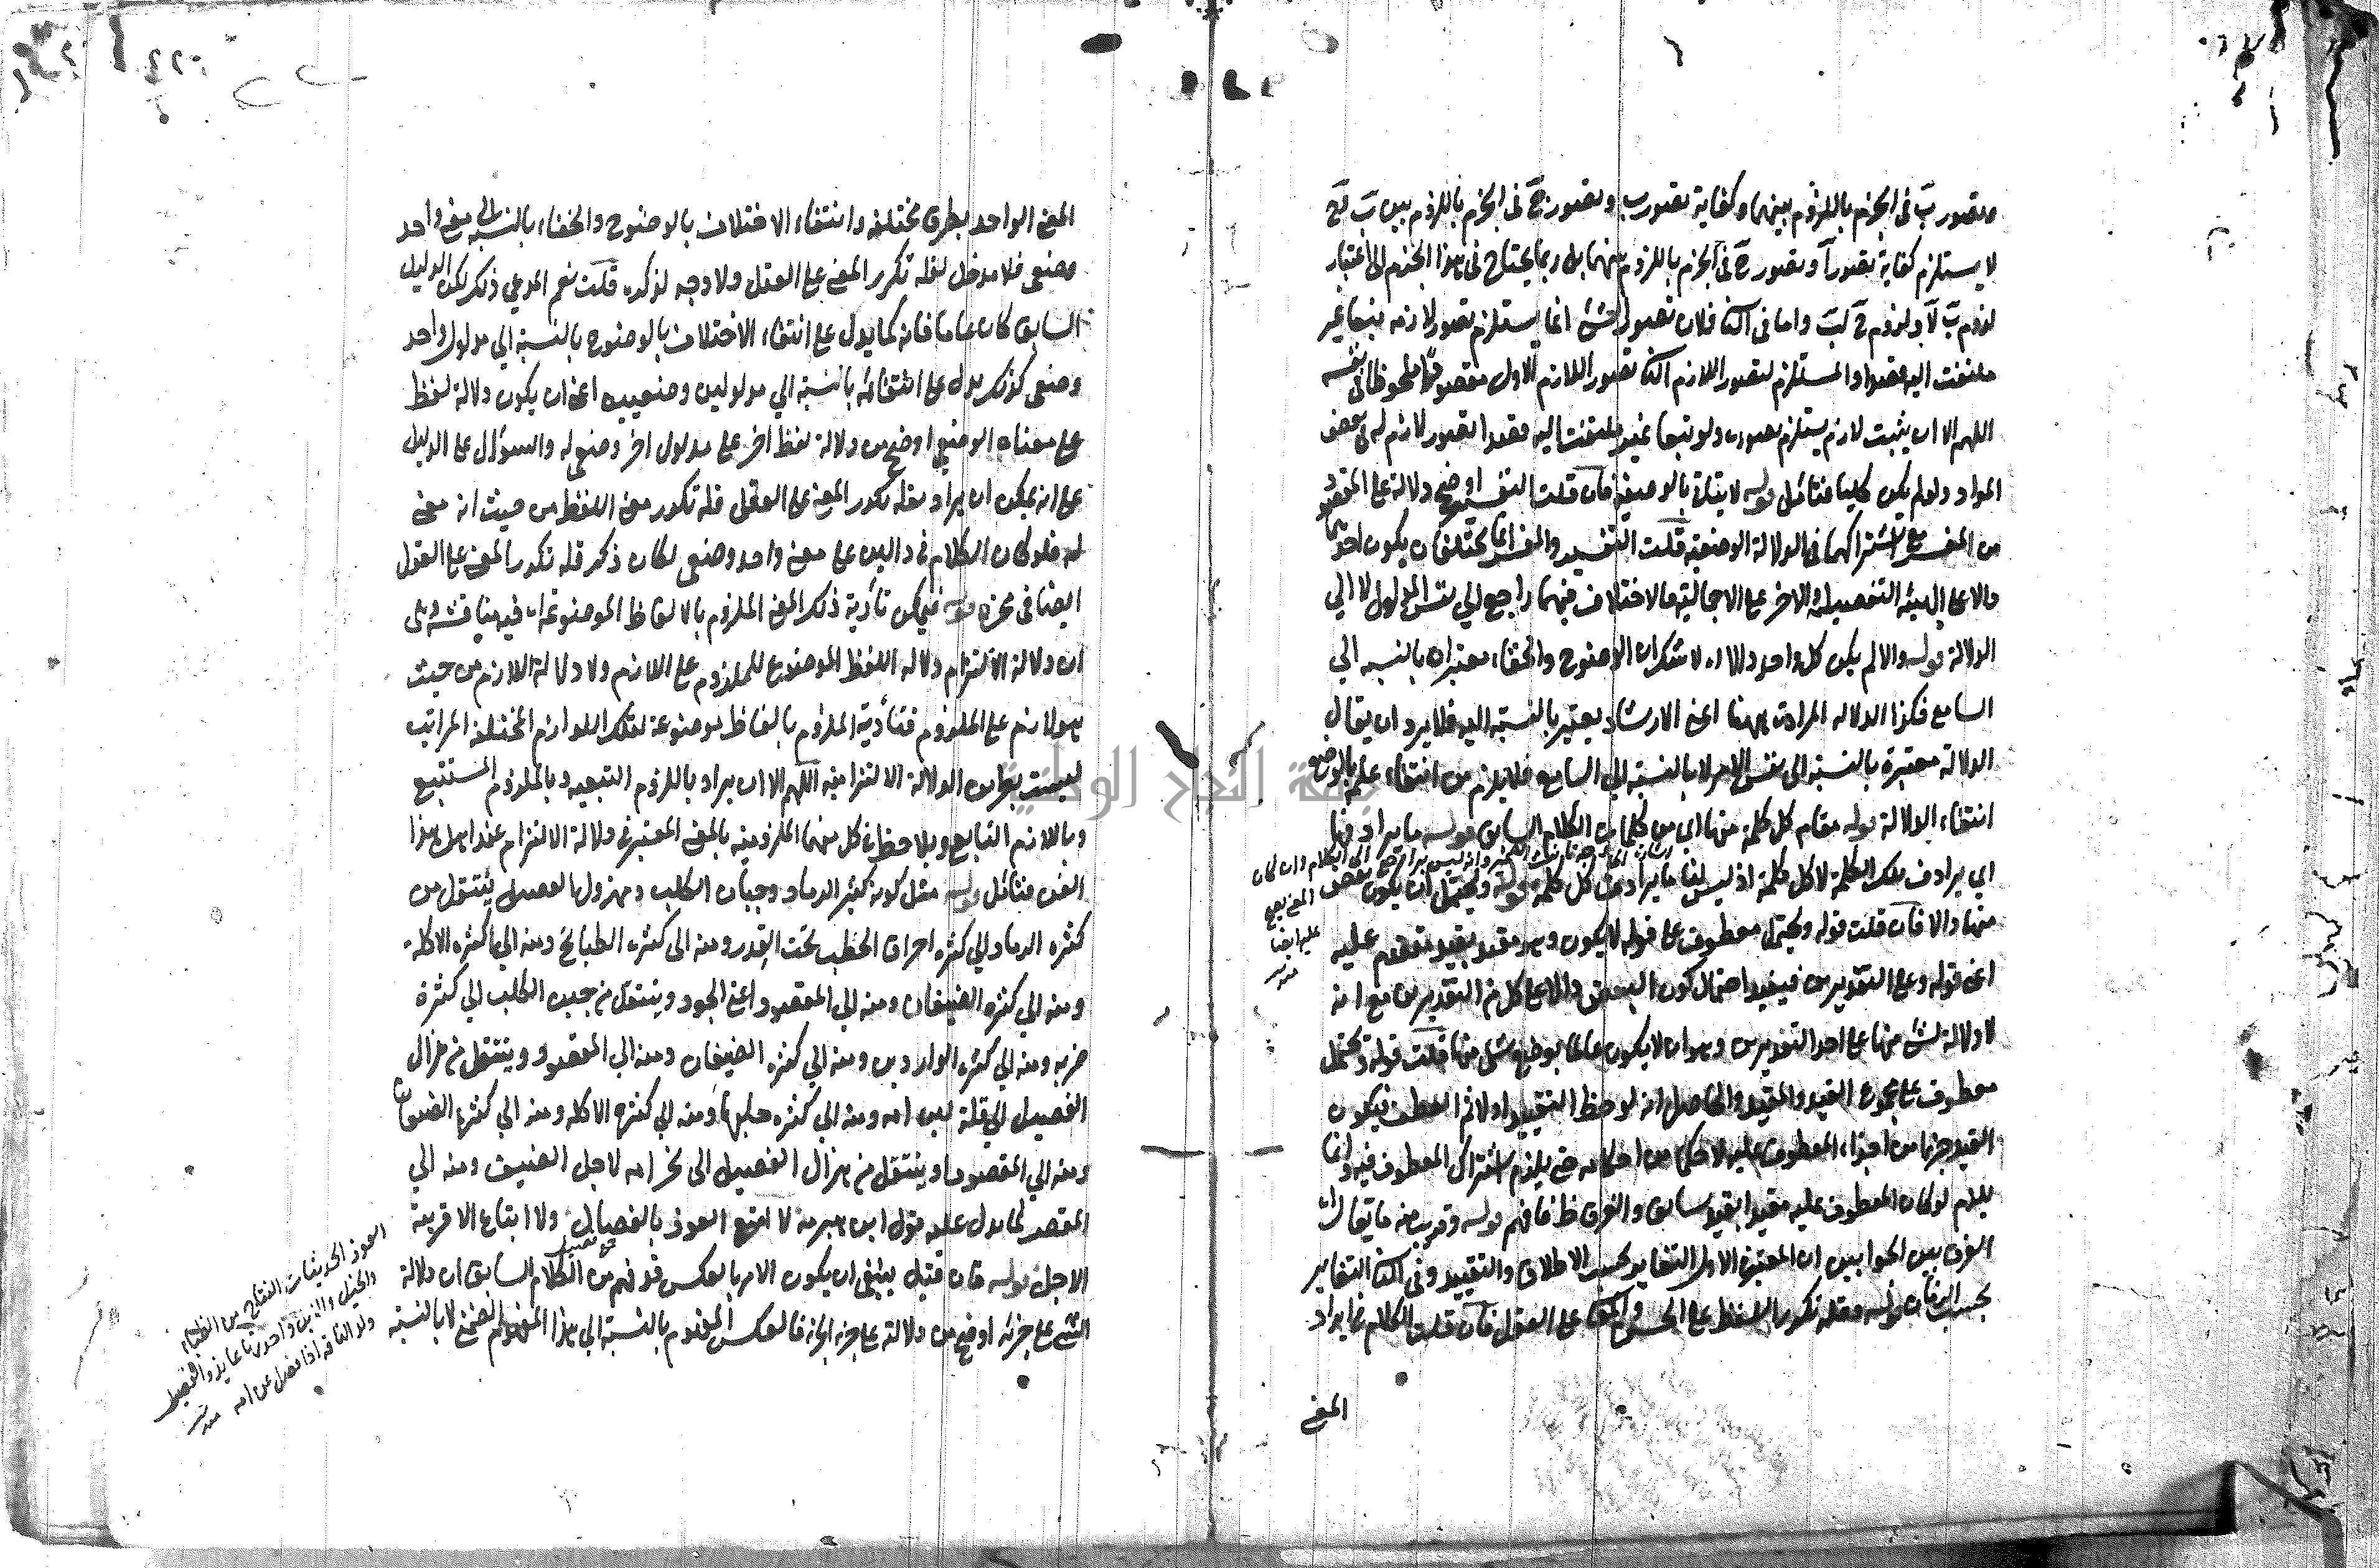 وتصور ب في الجزم باللزوم بينهما وكفاية تصور ب وتصور ج في الجزم باللزوم بين ب وج
لا يستلزم كفاية تصور آ وتصور ج في الجزم باللزوم بينهما بل ربما يحتاج في هذا الجزم الى اعتبار
لزوم ب لآ ولزوم ج لب واما في الثا فلان تصور الشئ انما يستلزم تصور لازمه تبعا غير
ملتفت اليه قصدا والمستلزم لتصور اللازم الثا تصور اللازم الاول مقصودا ملحوظا في نفسه
اللهم الا ان يثبت لازم يستلزم تصوره ولو تبعا غير ملتفت اليه قصدا تصور لازم له في بعض
المواد ولو لم يكن كليا فتأمل قوله لا يتأتى بالوضعية فان قلت التفسير اوضح دلالة على المقصود
من المفسر مع اشتراكهما في الدلالة الوضعية قلت التفسير والمفسر انما يختلفان بكون احدهما
دالا على الهيئة التفصيلية والاخر على الاجمالية فالاختلاف فيهما راجع الى نفس المدلول لا الى
الدلالة قوله والا لم يكن كل واحد دالا اه لا شك ان الوضوح والخفاء معتبران بالنسبة الى
السامع فكذا الدلالة المرادة ههنا اعنى الارشاد يعتبر بالنسبة اليه فلا يرد ان يقال
الدلالة معتبرة بالنسبة الى نفس الامر لا بالنسبة الى السامع فلا يلزم من انتفاء علمه بالوضع
انتفاء الدلالة قوله مقام كل كلمة منها اي من كلمات الكلام السابق قوله ما يرادفها
اي يرادف تلك الكلمة لا كل كلمة اذ ليس لنا ما يرادف كل كلمة قوله ويحتمل ان يكون بعض
منها دالا فان قلت قوله ويحتمل معطوف على قوله لا يكون وهو مقيد بقيد تقدم عليه
اعنى قوله وعلى التقديرين فيفيد احتمال كون البعض دالا على كل من التقديرين مع انه
لا دلالة لشئ منها على احد التقديرين وهو ان لا يكون عالما بوضع شئ منها قلت قوله ويحتمل
معطوف على مجموع القيد والمقيد والحاصل انه لوحظ التقييد اولا ثم العطف فيكون
القيد جزءا من اجزاء المعطوف عليه لا حكما من احكامه حتى يلزم اشتراك المعطوف فيه وانما
يلزم لو كان المعطوف عليه مقيدا بقيد سابق والفرق ظ فافهم قوله وقريب منه ما يقال
الفرق بين الجوابين ان المعتبر في الاول التغاير بحسب الاطلاق والتقييد وفي الثا التغاير
بحسب الزمان قوله وقلة تكرر اللفظ على الحس والمعنى على العقل فان قلت الكلام في ايراد
المعنى
المعنى الواحد بطرق مختلفة وانتفاء الاختلاف بالوضوح والخفاء بالنسبة الى معنى واحد
وضعي فلا مدخل لقلة تكرر المعنى على العقل ولا وجه لذكره قلت نعم المدعى ذلك لكن الدليل
السابق كان عاما فانه كما يدل على انتفاء الاختلاف بالوضوح بالنسبة الى مدلول واحد
وضعي كذلك يدل على انتفائه بالنسبة الى مدلولين وضعيين اعنى ان يكون دلالة لفظ
على معناه الوضعي اوضح من دلالة لفظ اخر على مدلول اخر وضعي له والسؤال على الدليل
على انه يمكن ان يراد بقلة تكرر المعنى على العقل قلة تكرر معنى اللفظ من حيث انه معنى
له فلو كان الكلام في دالين على معنى واحد وضعي لكان ذكر قلة تكرر المعنى على العقل
ايضا في محزه قوله فيمكن تأدية ذلك المعنى الملزوم بالالفاظ الموضوعة اه فيه مناقشة وهي
ان دلالة الالتزام دلالة اللفظ الموضوع للملزوم على اللازم ولا دلالة اللازم من حيث
هو لازم على الملزوم فتأدية الملزوم بالفاظ موضوعة لتلك اللوازم المختلفة المراتب
ليست بطريق الدلالة الالتزامية اللهم الا ان يراد باللزوم التبعية وبالملزوم المستتبع
وباللازم التابع ويلاحظ في كل منهما الملزومية بالمعنى المعتبر في دلالة الالتزام عند اهل هذا
الفن فتأمل قوله مثل كونه كثير الرماد وجبان الكلب ومهزول الفصيل ينتقل من
كثرة الرماد الى كثرة احراق الحطب تحت القدر ومنه الى كثرة الطبائخ ومنه الى كثرة الاكلة
ومنه الى كثرة الضيفان ومنه الى المقصود اعنى الجود وينتقل من جبن الكلب الى كثرة
ضربه ومنه الى كثرة الواردين ومنه الى كثرة الضيفان ومنه الى المقصود وينتقل من هزال
الفصيل الى قلة لبن امه ومنه الى كثرة حلبها ومنه الى كثرة الاكلة ومنه الى كثرة الضيفان
ومنه الى المقصود او ينتقل من هزال الفصيل الى نحر امه لاجل الضيف ومنه الى
المقصد كما يدل عليه قول ابن هرمة لا امتع العوذ بالفصال ولا ابتاع الا قريبة
جمع فصيل
الاجل قوله فان قيل ينبغى ان يكون الامر بالعكس قد فهم من الكلام السابق ان دلالة
الشئ على جزئه اوضح من دلالته على جزء الجزء فالعكس المفهوم بالنسبة الى هذا المفهوم الضمني لا بالنسبة
العوذ الحديثات النتاج من الظباء
والخيل والابل واحدتها عائذ والفصيل
ولد الناقة اذا فصل عن امه منه